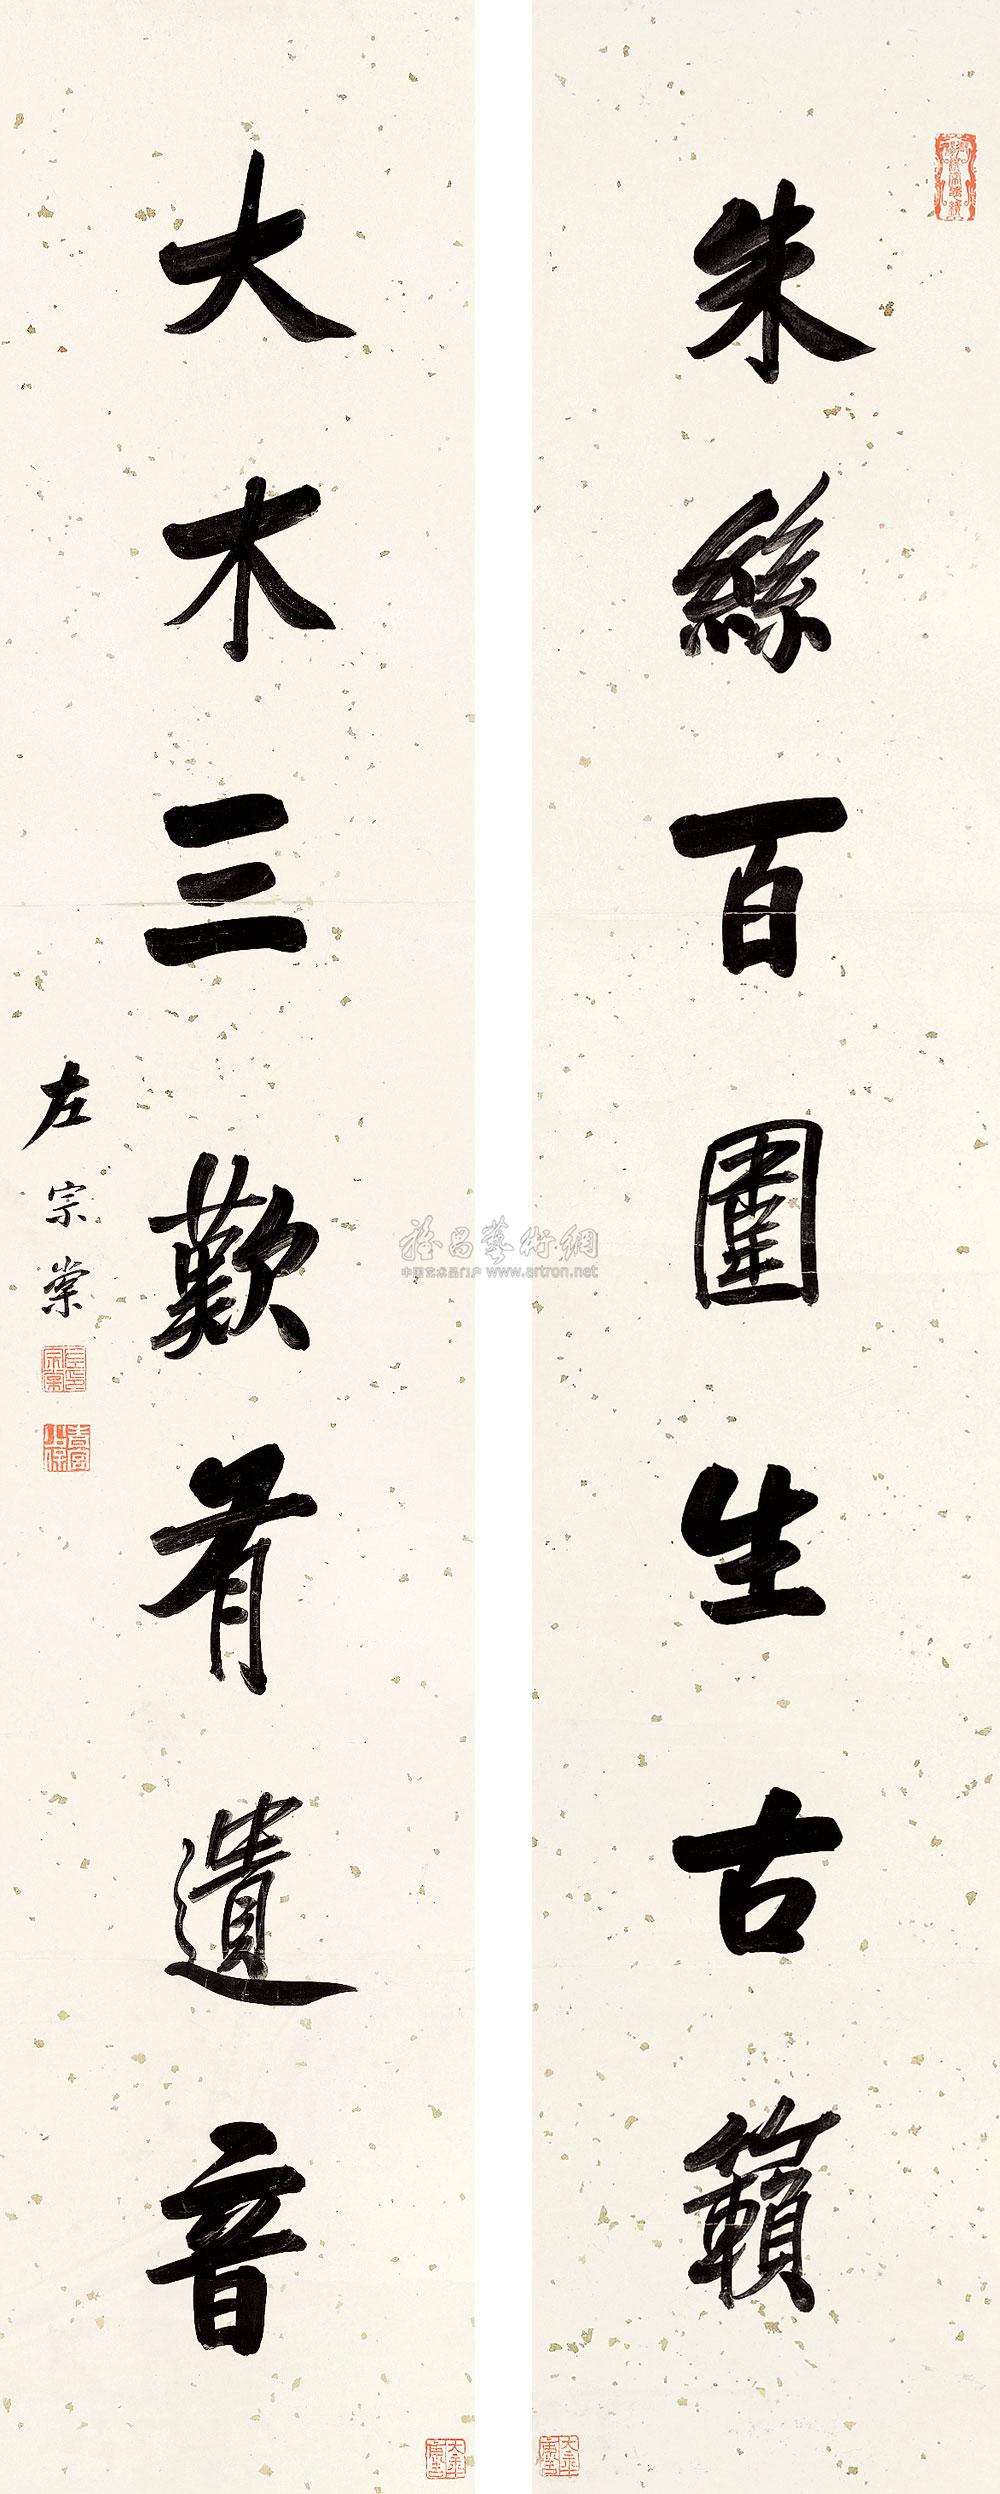 朱絲百圍生古籟
大木三歎有遺音
左宗棠
雅昌藝術網
中国艺术品门户 www.artron.net